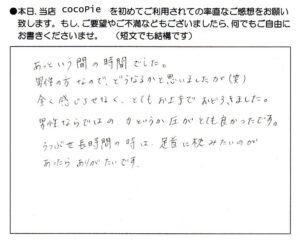 ●本日、当店 cocoPie を初めてご利用されての率直なご感想をお願い
致します。もし、ご要望やご不満などもございましたら、何でもご自由に
お書きくださいませ。 (短文でも結構です)
あっという間の時間でした。
男性の方なので、どうなるかと思いましたが(笑)
全く感じさせなく、とてもお上手でおどろきました。
男性ならではの、力というか圧がとても良かったです。
うつぶせ長時間の時は、足首に枕みたいのが
あったらありがたいです。